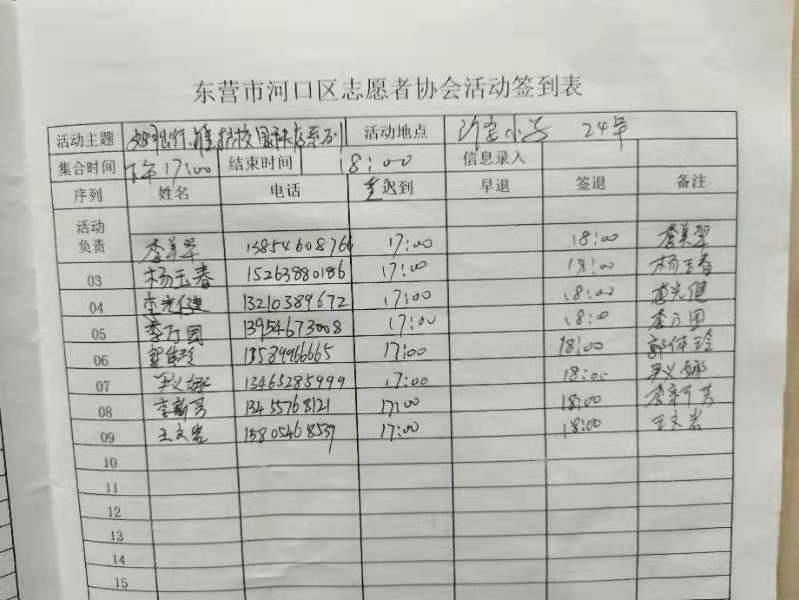 东营市河口区志愿者协会活动签到表
活动主题 活动地点 小学 24年
集合时间 下午17:00 结束时间 18:00 信息录入
序列 姓名 电话 迟到 早退 签退 备注
活动
负责 李美翠 13854608766 17:00 18:00 李美翠
03 杨玉春 15263880186 17:00 18:00 杨玉春
04 李光健 13210389672 17:00 18:00 李光健
05 李方圆 13954673008 17:00 18:00 李方圆
06 郭伟玲 13589966665 17:00 18:00 郭伟玲
07 尹义娜 13465285999 17:00 18:00 尹义娜
08 李新芳 13455768121 17:00 18:00 李新芳
09 王文岩 15805468537 17:00 18:00 王文岩
10
11
12
13
14
15